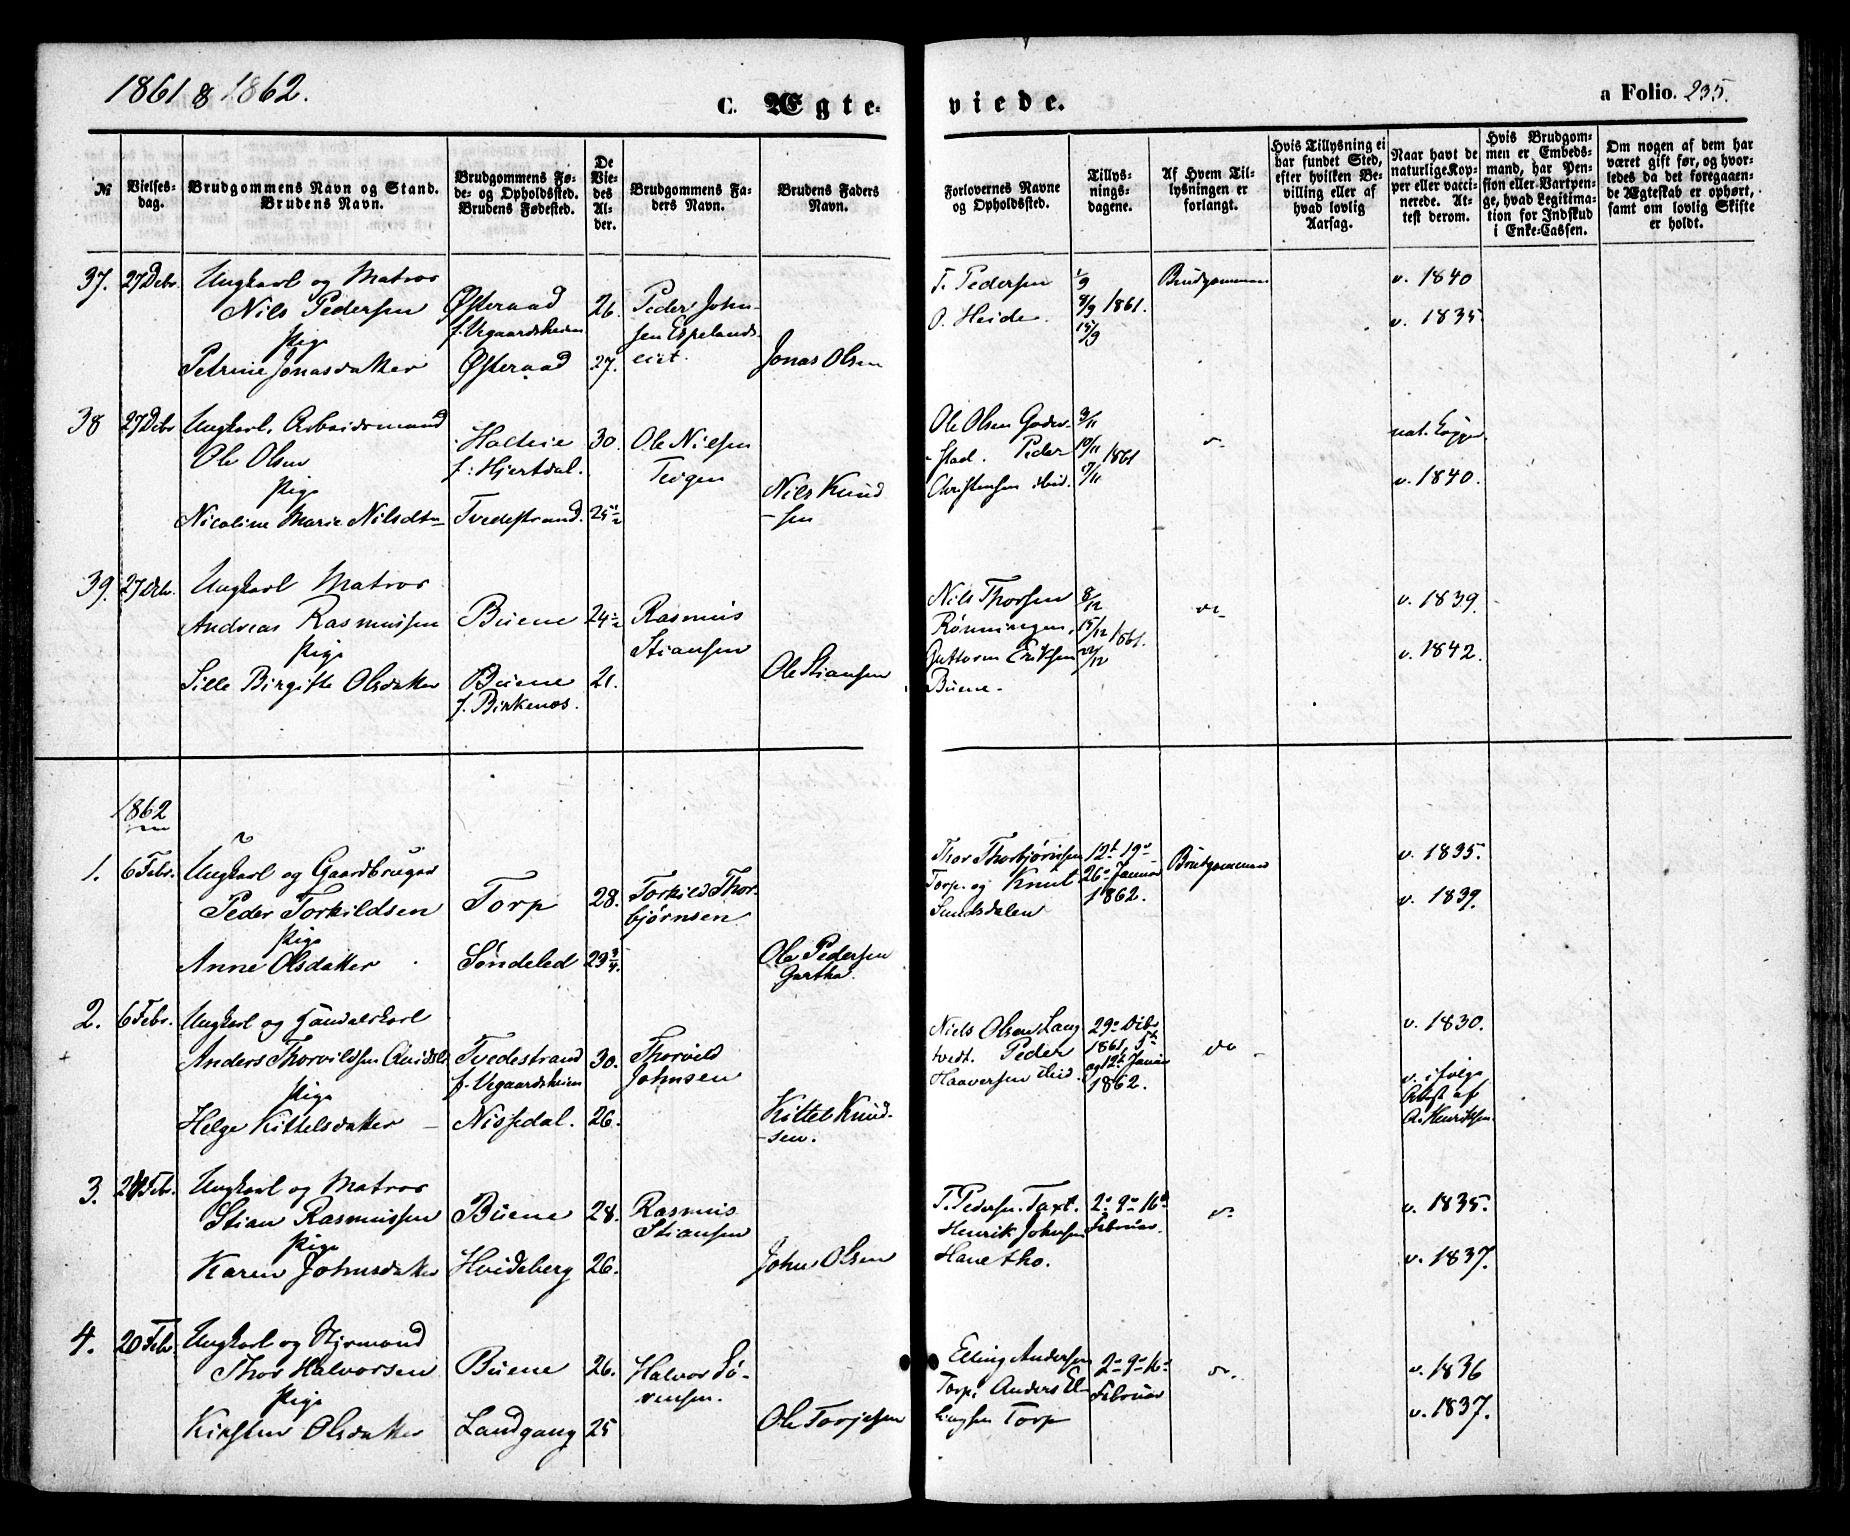 1861 & 1862.
C. Ægte-
viede.
a Folio. 235.
№
Vielses-
dag.
Brudgommens Navn og Stand.
Brudens Navn.
Brudgommens Fø-
de- og Opholdssted.
Brudens Fødested.
De
Vie-
des
Al-
der.
Brudgommens Fa-
ders Navn.
Brudens Faders
Navn.
Forlovernes Navne
og Opholdssted.
Tillys-
nings-
dagene.
Af Hvem Til-
lysningen er
forlangt.
Hvis Tillysning ei
har fundet Sted,
efter hvilken Be-
villing eller af
hvad lovlig
Aarsag.
Naar havt de
naturlige Kop-
per eller vacci-
nerede. At-
test derom.
Hvis Brudgom-
men er Embeds-
mand, har Pen-
sion eller Vartpen-
ge, hvad Legitima-
tion for Indskud
i Enke-Cassen.
Om nogen af dem har
været gift før, og hvor-
ledes da det foregaaen-
de Ægteskab er ophørt,
samt om lovlig Skifte
er holdt.
37. 27 Debr. Ungkarl og Matros
Nils Pedersen
Pige
Petrine Jonasdatter
Østeraad
f. Vegaardsheien
Østeraad
26.
27.
Peder John-
sen Espelands-
eiet.
Jonas Olsen
T. Pedersen
O. Heide.
1/9
8/9 1861.
15/9
Brudgommen
v. 1840
v. 1835.
38 27 Debr Ungkarl, Arbeidsmand
Ole Olsen
Pige
Nicoline Marie Nilsdtr
f. Hjertdal.
Tvedestrand.
30.
25 1/2
Ole Nilsen
Teigen
Nils Knud
-sen
Ole Olsen Goder-
-stad. Peder
Christensen ibid.
3/11
10/11 1861
17/11
nat. Kopper.
v. 1840.
39. 27 Debr. Ungkarl Matros
Andreas Rasmussen
Pige
Sille Birgitte Olsdatter
Buene
Buene
f. Birkenes.
24 1/2
21.
Rasmus
Stiansen
Ole Stiansen
Nils Thorsen
Rønningen,
Guttorm Eriksen
Buene.
8/12
15/12 1861.
22/12
v. 1839.
v. 1842.
1862
1. 6 Febr. Ungkarl og Gaardbruger
Peder Torkildsen
Pige
Anne Olsdatter
Torp
Søndeled
28.
29 3/4.
Torkild Thor-
bjørnsen
Ole Pedersen
Gartha.
Thor Thorbjørnsen
Torp. og Knut
Sundsdalen
12te 19de
26de Januar
1862.
Brudgommen
v. 1835.
v. 1839.
2. 6 Febr. Ungkarl og Handelskarl
Anders Thorvildsen
Pige
Helge Kittelsdatter
Tvedestrand
f. Vegaardsheien
Nissedal.
30.
26.
Thorvild
Johnsen
Kittel Knud-
-sen.
Niels Olsen Lang
tvedt. Peder
Haaversen ibid.
29de Debr
1861, 5te
og 12te Januar
1862.
do
v. 1830.
v. ifølge
Attest af
A. Henriksen.
3. 20 Febr. Ungkarl og Matros
Stian Rasmussen
Pige
Karen Johnsdatter
Buene
Hvideberg
28.
26.
Rasmus
Stiansen
John Olsen
T. Pedersen Taxt.
Henrik Johnsen
Hanetho.
2de 9de 16de
Februar.
v. 1835.
v. 1837.
4. 20 Febr Ungkarl og Styrmand
Thor Halvorsen
Pige
Kirsten Olsdatter
Buene
Landgang
26.
25
Halvor Sø-
rensen.
Ole Torjesen
Elling Andersen
Torp, Anders El-
lingsen Torp
2de 9de 16de
Februar
do.
v. 1836
v. 1837.